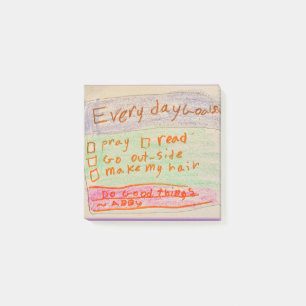 Everyday Goals
pray read
Go out-side
make my hair
Do Good things
~ ABBY